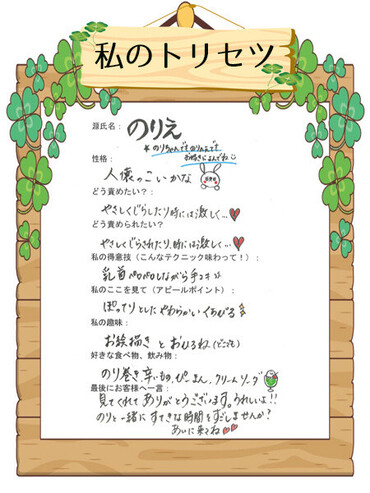 私のトリセツ
源氏名：のりえ
★のりちゃんでものりんでも
お好きによんでね☺
性格：
人懐っこいかな
どう責めたい？：
やさしくじらしたり時には激しく…♥
どう責められたい？：
やさしくじらされたり、時には激しく…♥
私の得意技（こんなテクニック味わって！）：
乳首ペロペロしながら手コキ☆
私のここを見て（アピールポイント）：
ぽってりとしたやわらかいくちびる
私の趣味：
お絵描きとおひるね（どこでも）
好きな食べ物、飲み物：
のり巻き、辛いもの、ぴーまん、クリームソーダ
最後にお客様へ一言：
見てくれてありがとうございます。うれしいよ！！
のりと一緒にすてきな時間をすごしませんか？
あいに来てね♥♥